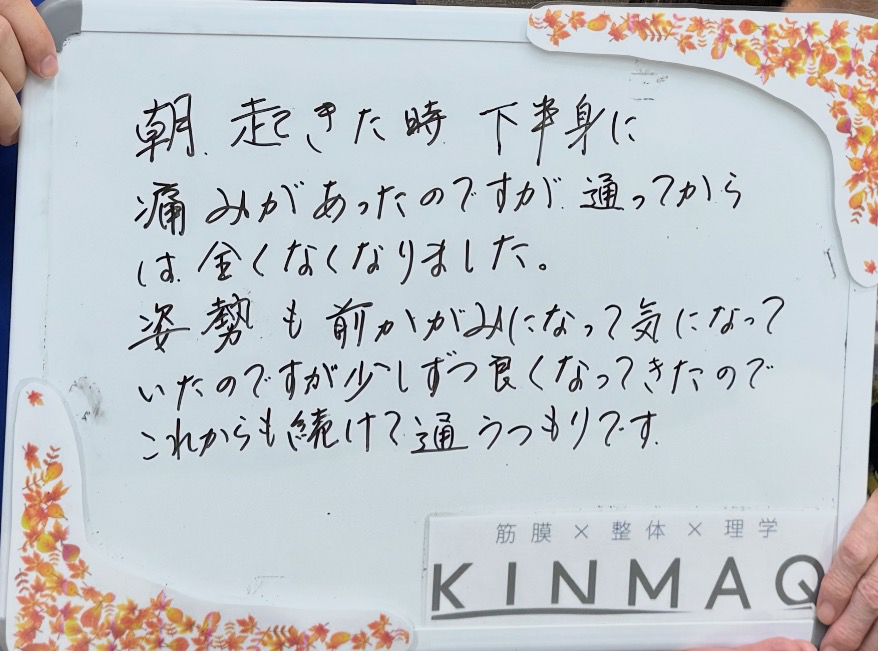 朝 起きた時 下半身に
痛みがあったのですが 通ってから
は 全くなくなりました。
姿勢も前かがみになって気になって
いたのですが少しずつ良くなってきたので
これからも続けて通うつもりです.
筋膜×整体×理学
KINMAQ